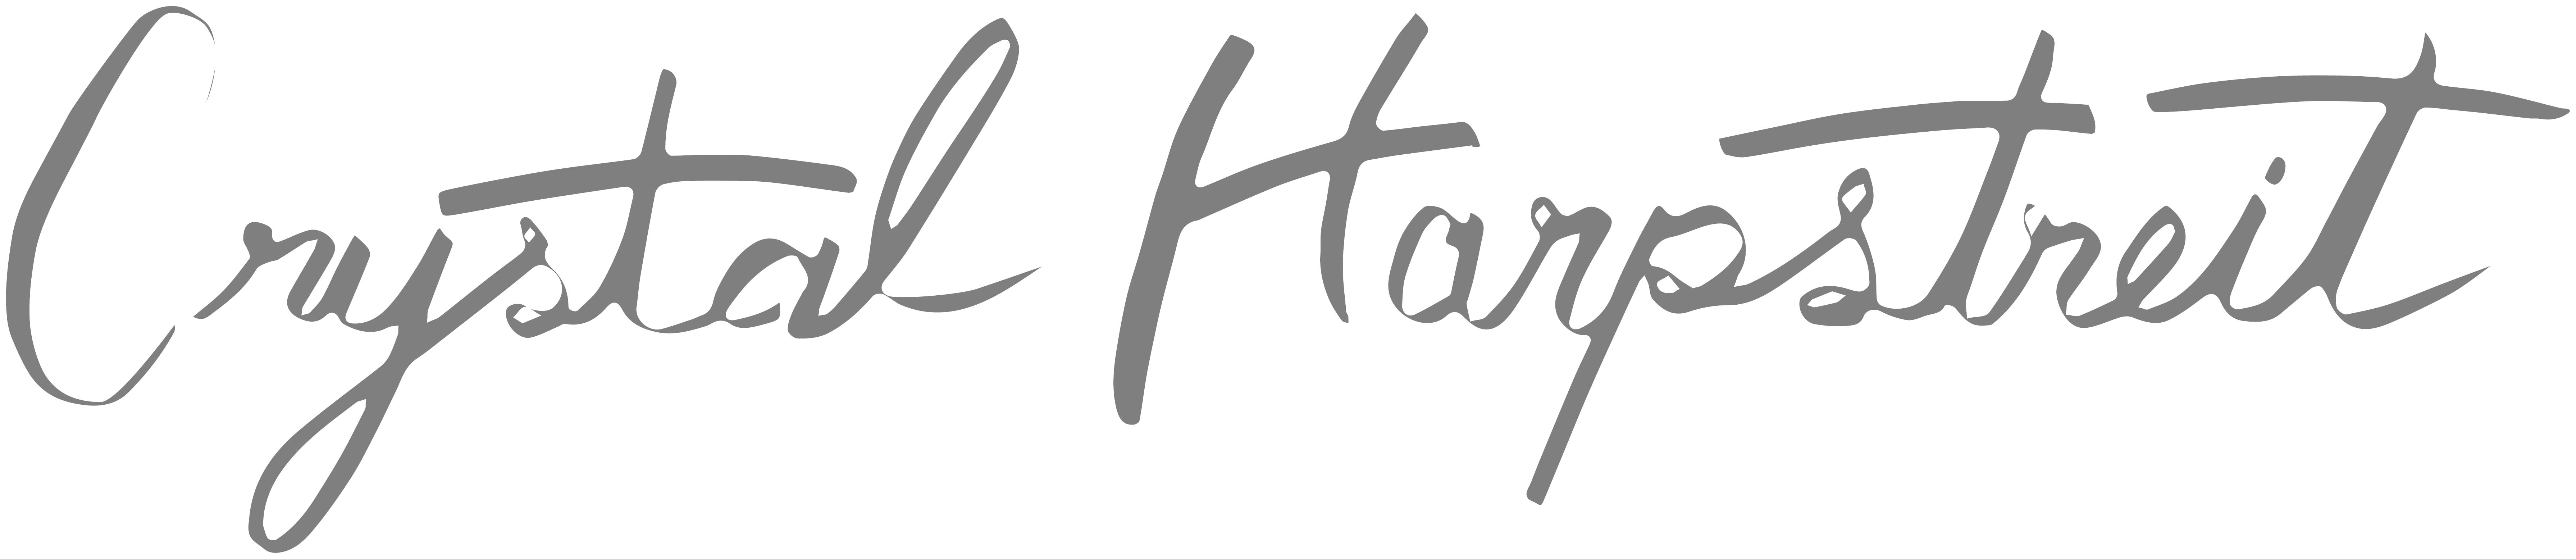 Crystal Harpstreit